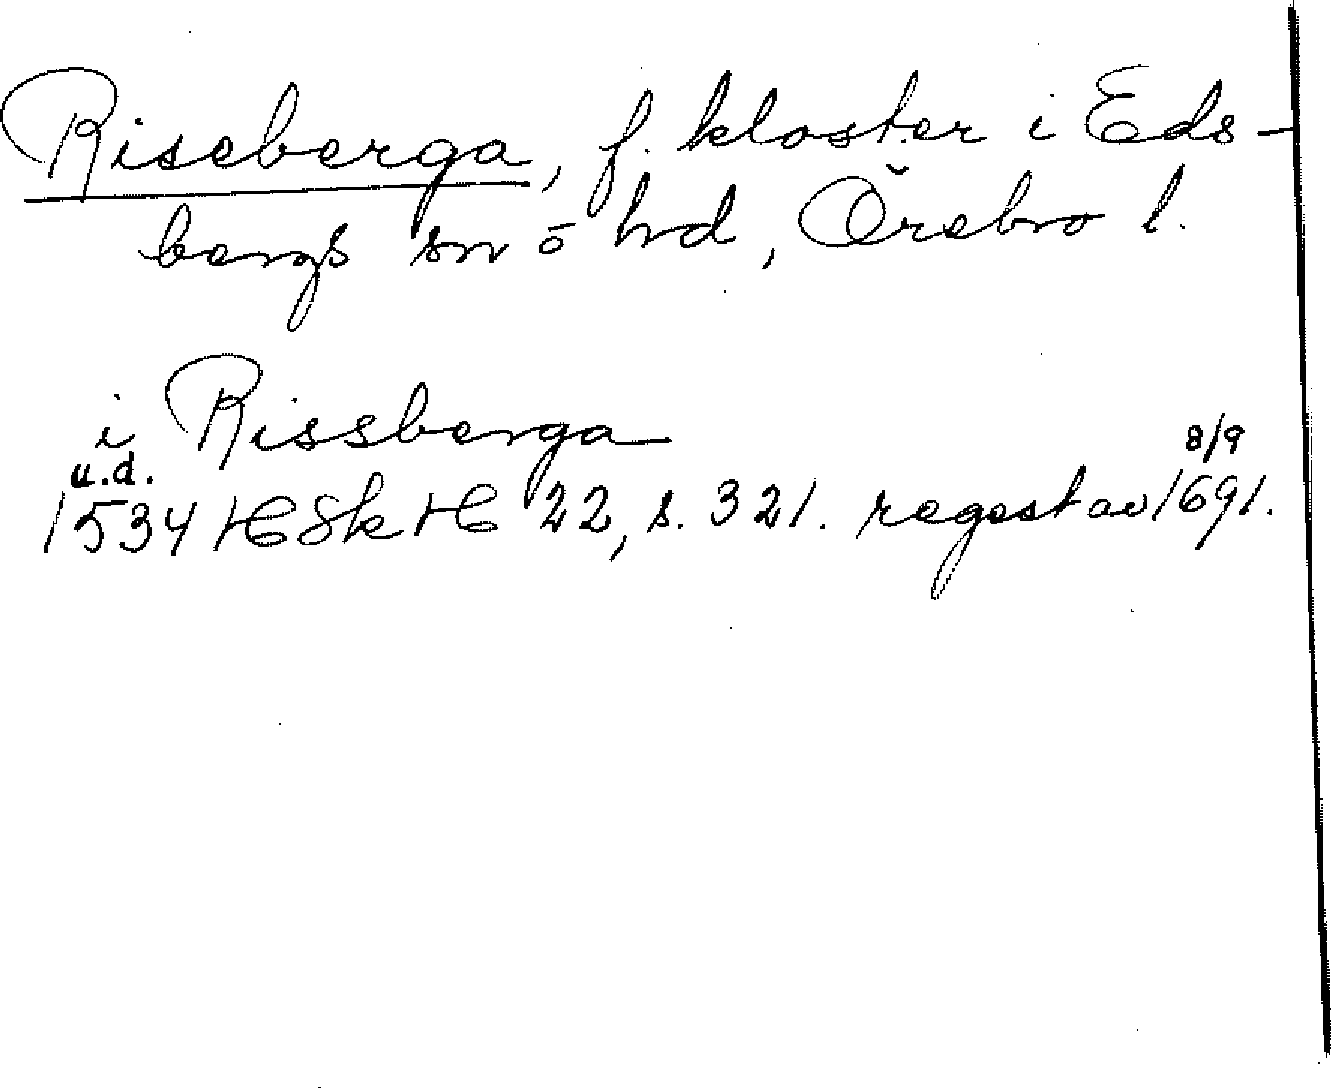 Riseberga, f. kloster i Eds-
bergs sn o hd, Örebro l.
i Rissberga
u.d. 8/9
1534 HSkH 22, s. 321. regest av 1691.